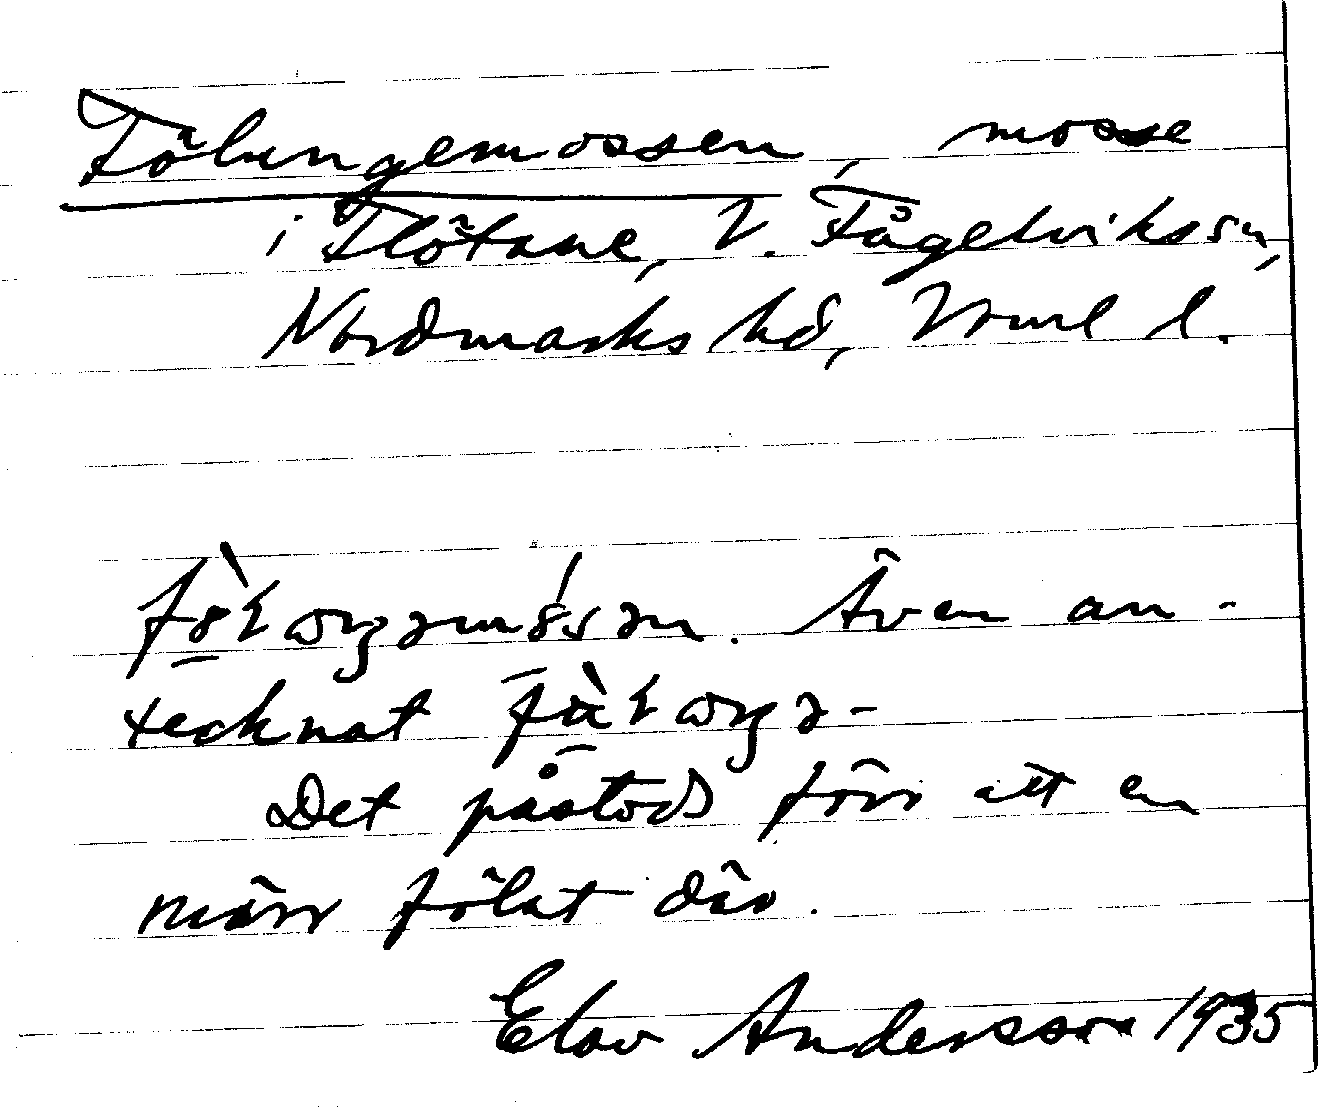 Fölungemossen, mosse
i Flötane, V. Fågelvikssn,
Nordmarks hd, Vrml l.
Även an-
tecknat
Det påstods förr att en
märr fölat där.
Elov Andersson 1935